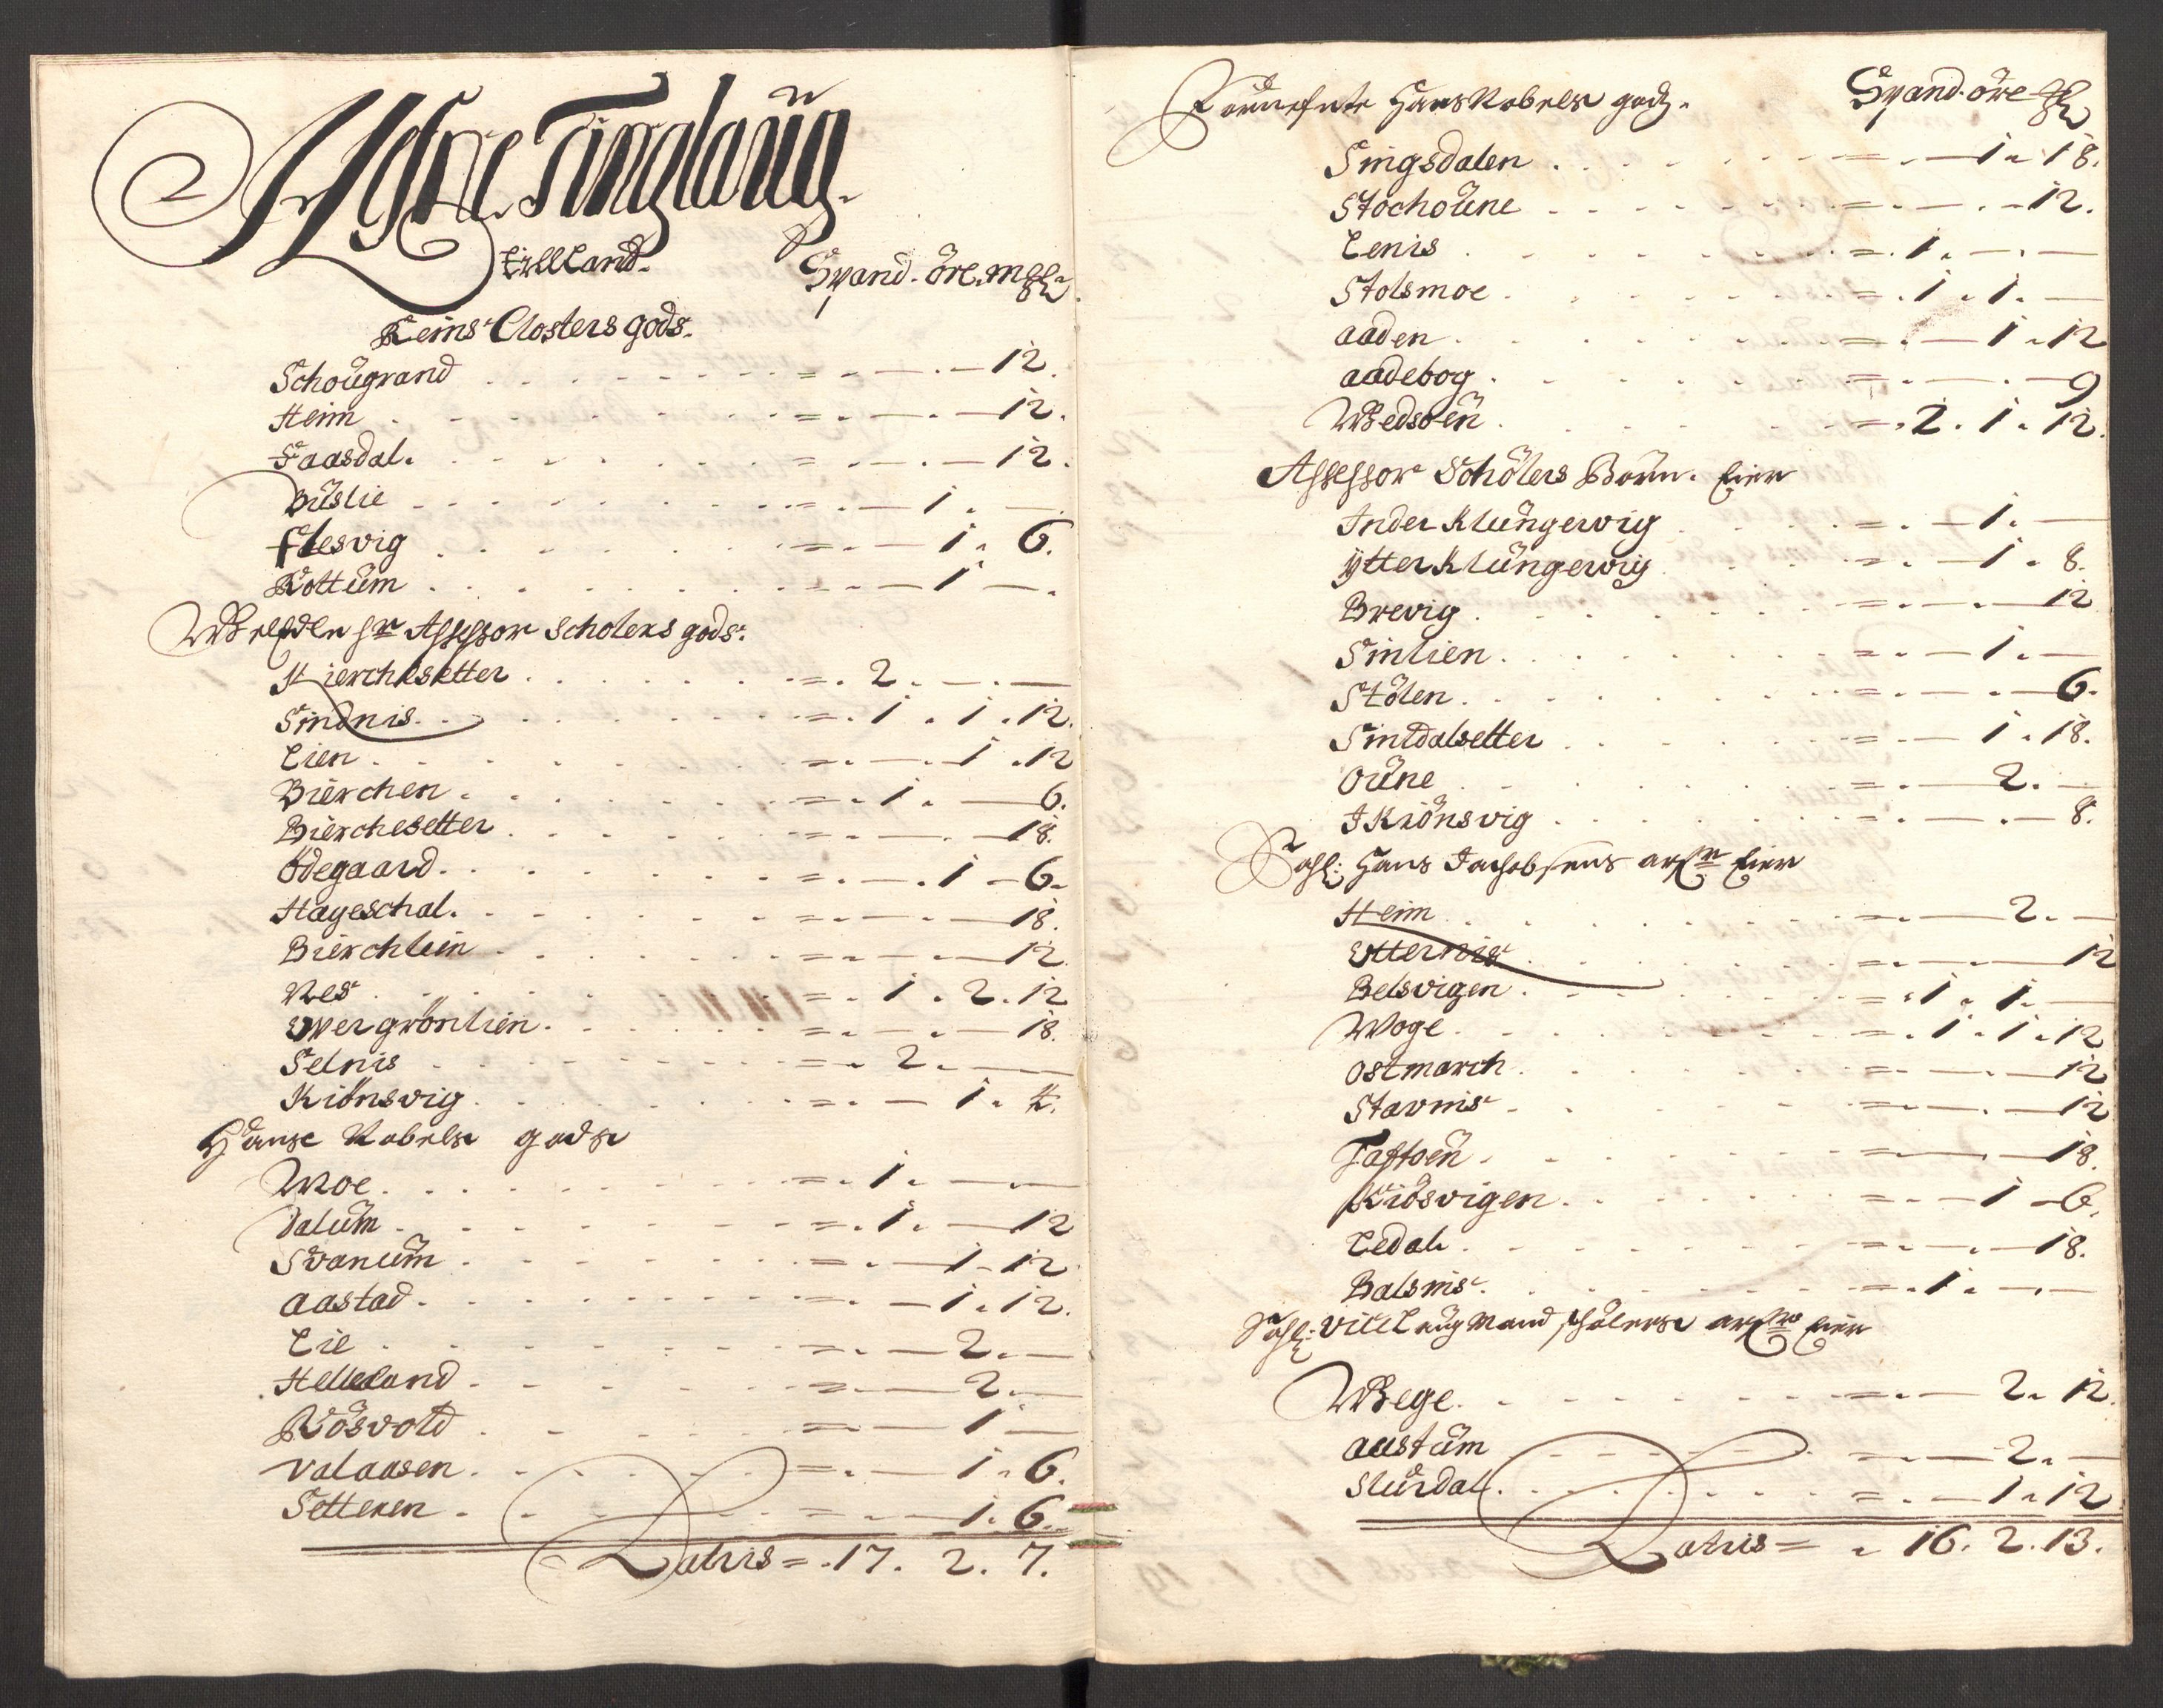 Ystre Tinglaüg
till Land. Spand. öre. m℔
Reins Closters gods.
Schoügrand = - - 12.
Heim = - - 12.
Faasdal. = - - 12.
Büslie = - 1. -
flesvig = - 1. 6.
Kottüm = - 1 -
hr Assessor Scholers gods.
Hierchesetter = 2. - -
Sindnis = 1. 1. 12.
Lien = - 1. 12
Bierchen = 1. - 6.
Bierchesetter = - - 18.
Ödegaard = - 1 - 6.
Hageschal. = - - 18.
Bierchlein = - - 12.
Nes = 1. 2. 12
Over grönlien. = - - 18.
Selnis = 2. - -
Kiönsvig = - 1. 4.
Hans Nobels gods
Moe. = 1. - -
Dalüm = 1. - 12
Svanüm = - 1 - 12
aastad = - 1. 12.
Lie = - 2. -
Helleland = - 2. -
Rösvold = - 1 -
Valaasen = - 1. 6.
Setteren = - 1. 6.
Latris = 17. 2. 7.
Hans Nobels godz. Spand. öre ℔
Singsdalen = - 1. 18.
Stochoüne = - - 12.
Lenis = 1. - -
Stolsmoe = 1. 1. -
aaden = - 1. 12
aadebog = - - 9
Wedsöen = 2. 1. 12.
Assessor Schölers Börn. Eier
Inder Klüngervig = - 1. -
ytter Klüngervig = - 1. 8.
Brevig = - - 12
Sinlien = - 1. -
Stölen = - - 6.
Sintdalsetter = - 1. 18.
Oüne = - 2. -
I Kiönsvig = - - 8.
Sahl: Hans Jachobsens arfr Eier
Heim = - 2. -
Utternis = - - 12
Belsvigen = 1. 1. -
Woge = 1. 1. 12
ostmarch = - - 12
Stavnis = - - 12
Taftöen = - - 18.
Kiösvigen = - 1 - 6.
Ledal. = - - 18.
Balsnis = 1. - -
Sahl: Vice Laugmand Schölers arfr Eier
Wege = - 2. 12.
austüm = - 2. -
Slürdal = - 1. 12
Latris = 16. 2. 13.